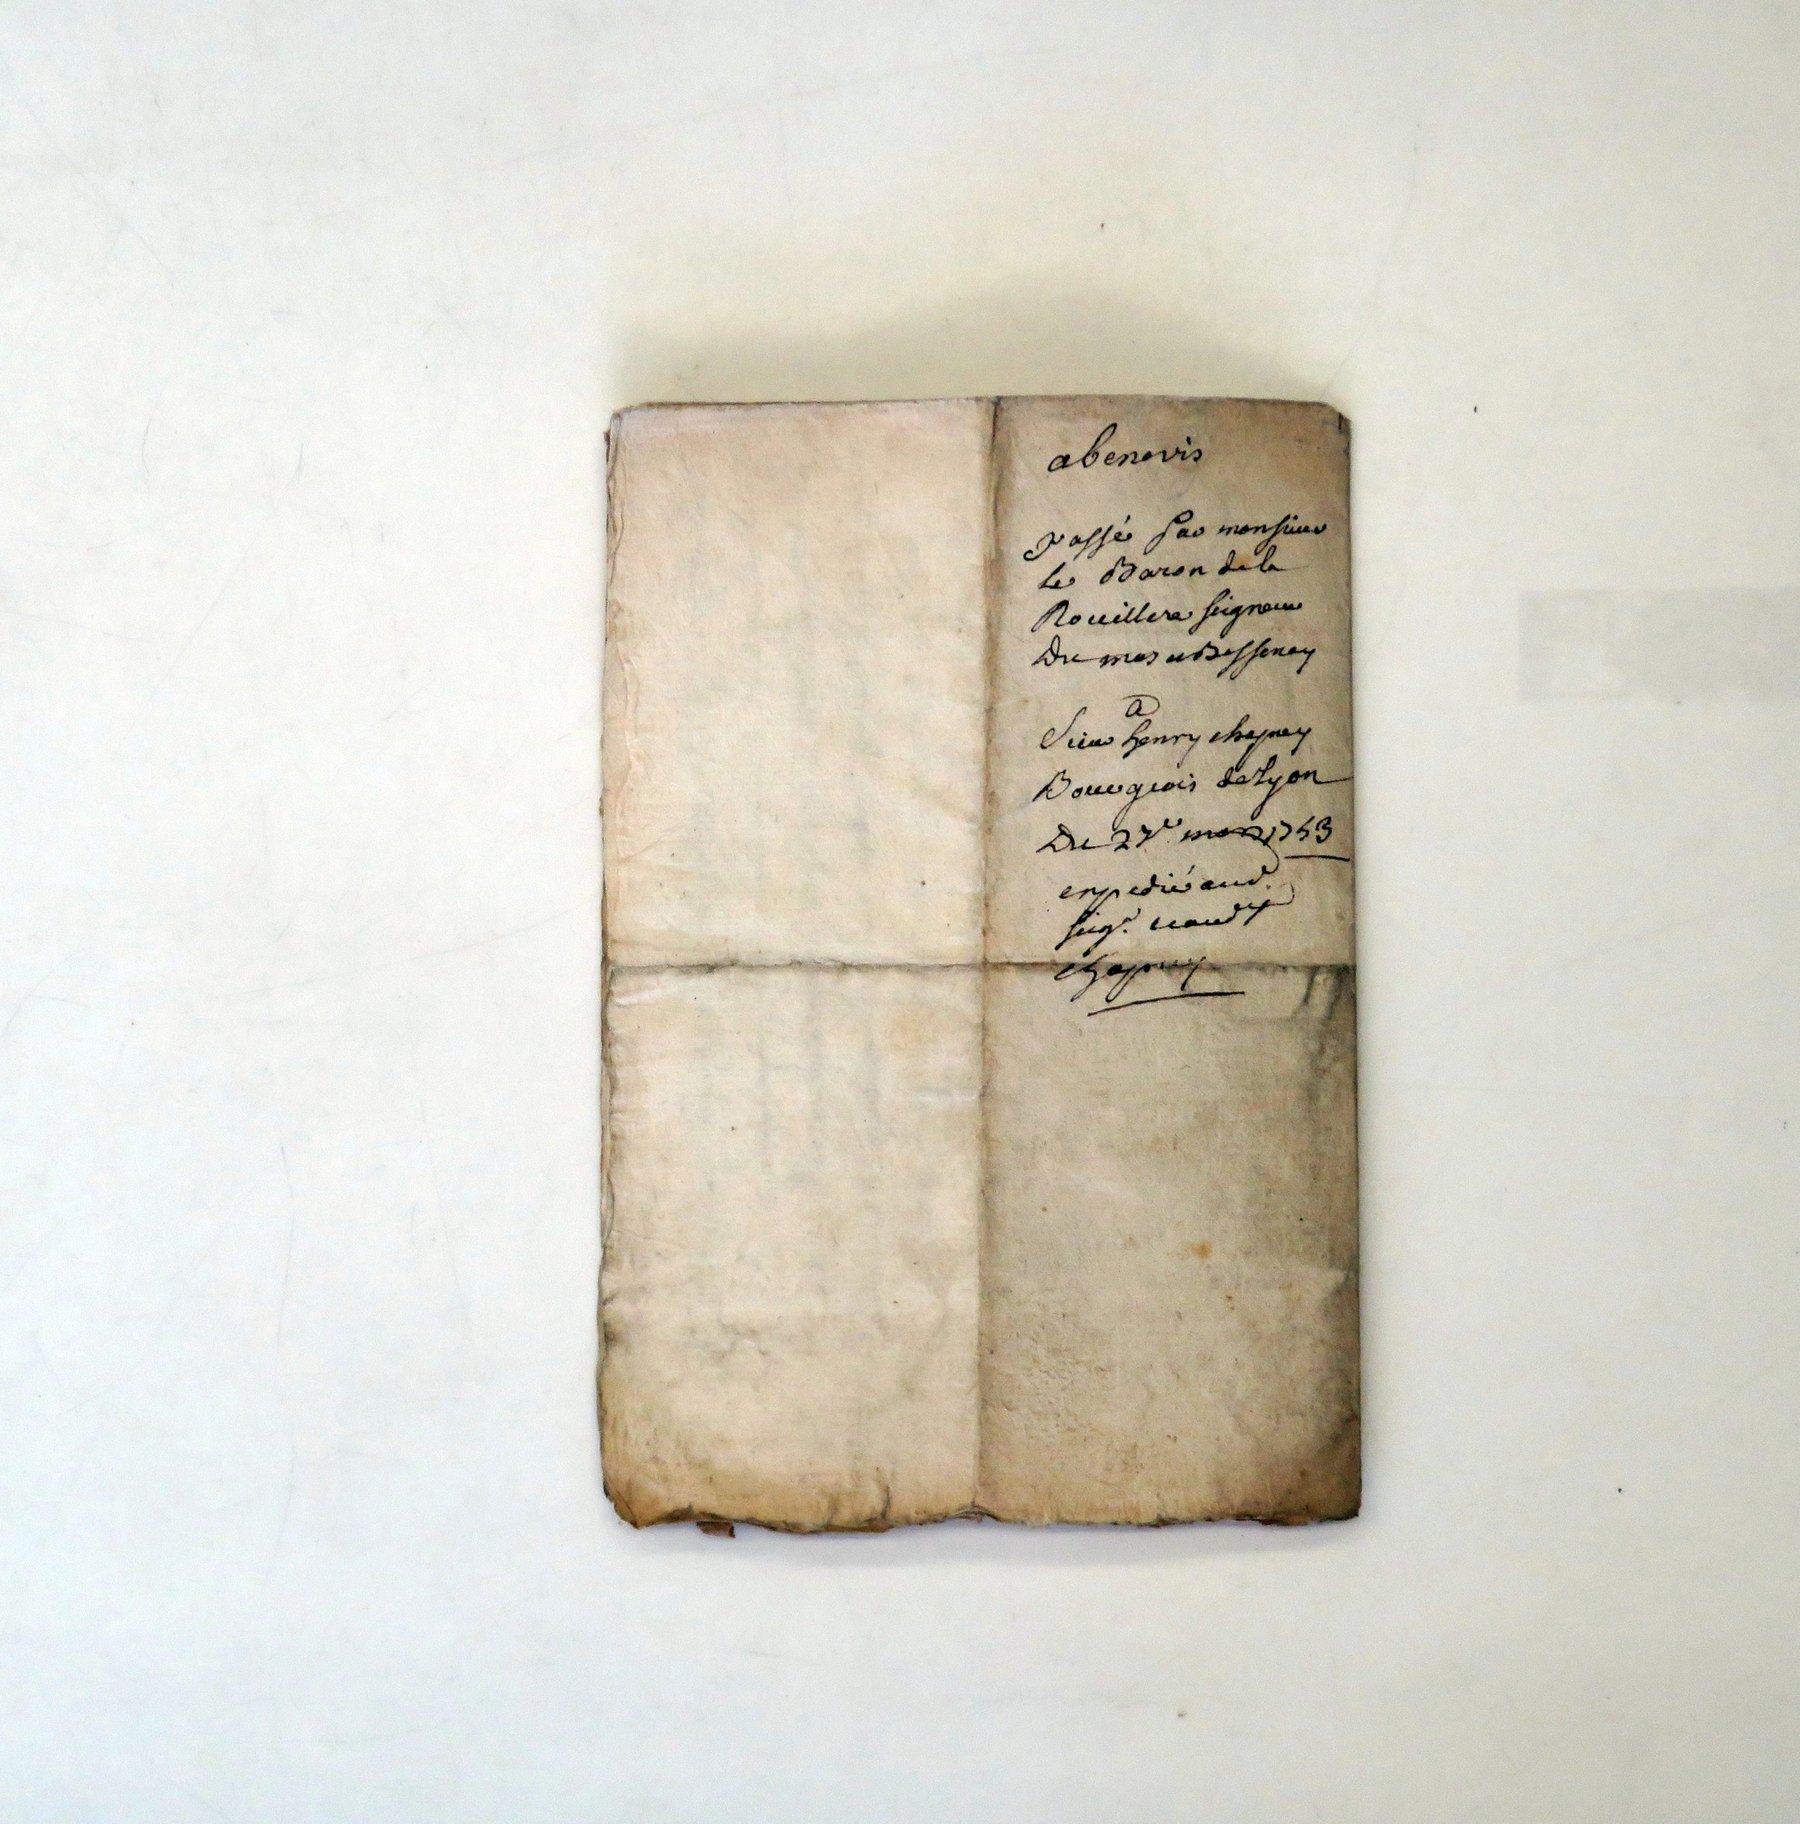 abenevis
Passé Par monsieur
Le Baron de la
Rouillere seigneur
Du mas et Bessenay
a
Sieur henry chapuy
Bourgeois de Lyon
Du 27e mars 1753
expedié aud.
seigr. et aud.
chapuy